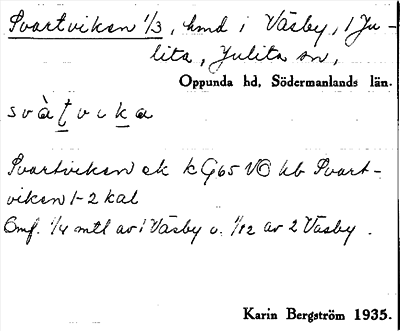 Svartviken 1/3, hmd i Väsby, 1 Ju-
lita, Julita sn,
Oppunda hd, Södermanlands län.
svàṭvika
Svartviken ek k G65 V© hb Svart-
viken 1-2 kal
Omf. 1/4 mtl av 1 Väsby o. 1/12 av 2 Väsby.
Karin Bergström 1935.